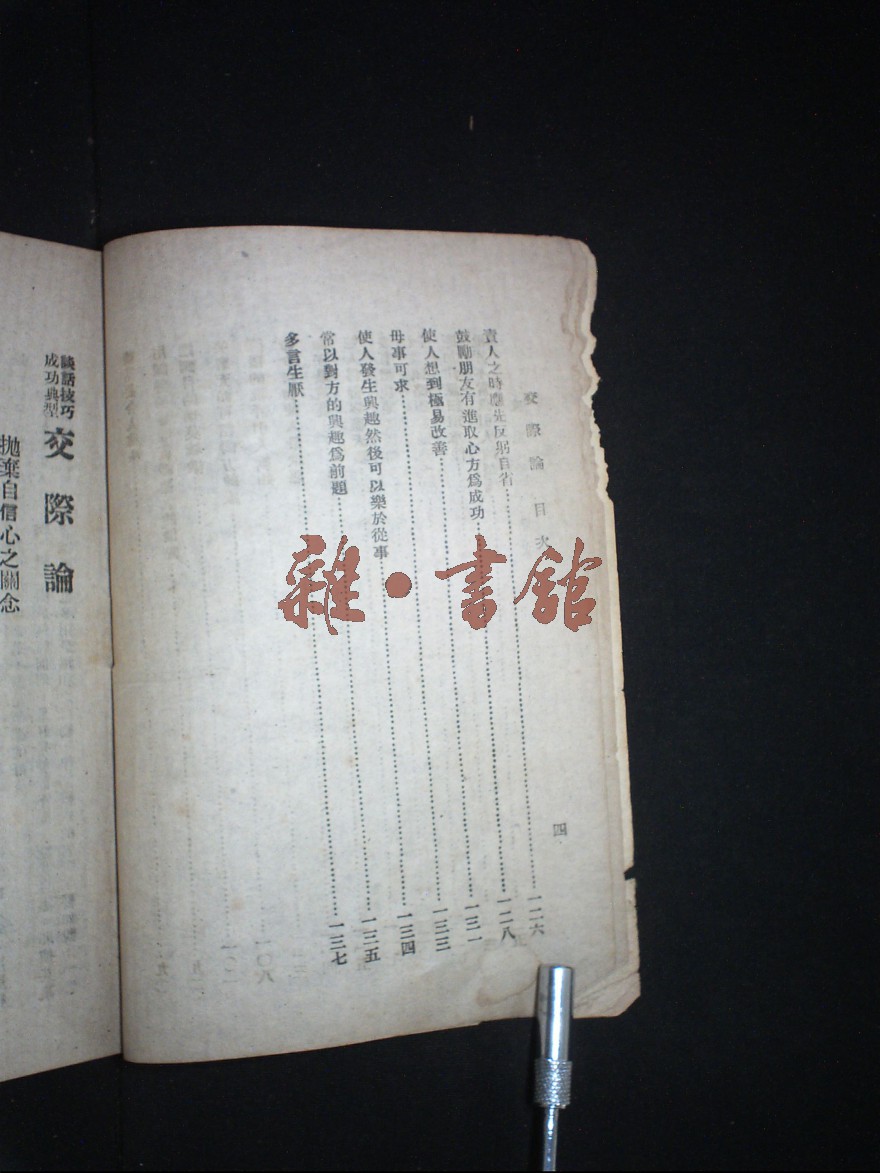 交際論目次
四
責人之時應先反躬自省⋯⋯一二六
鼓勵朋友有進取心方爲成功⋯⋯一二八
使人想到極易改善⋯⋯一三一
毋事可求⋯⋯一三三
使人發生興趣然後可以樂於從事⋯⋯一三四
常以對方的興趣爲前題⋯⋯一三五
多言生厭⋯⋯一三七
談話技巧
成功典型
交際論
拋棄自信心之關念
雜·書館